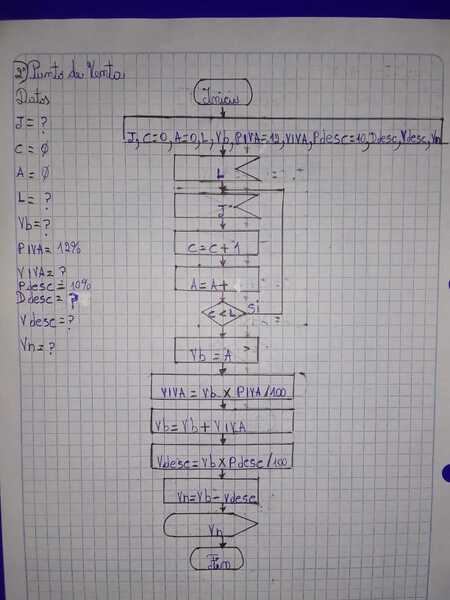 2º) Punto de Venta
Datos
J = ?
C = ∅
A = ∅
L = ?
Vb = ?
PIVA = 12%
VIVA = ?
Pdesc = 10%
Ddesc = ?
Vdesc = ?
Vn = ?
Inicio
J, C=0, A=0, L, Vb, PIVA=12, VIVA, Pdesc=10, Ddesc, Vdesc, Vn
L
J
C = C + 1
A = A +
C < L
Si
Vb = A
VIVA = Vb x PIVA/100
Vb = Vb + VIVA
Vdesc = Vb x Pdesc/100
Vn = Vb - Vdesc
Vn
Fin